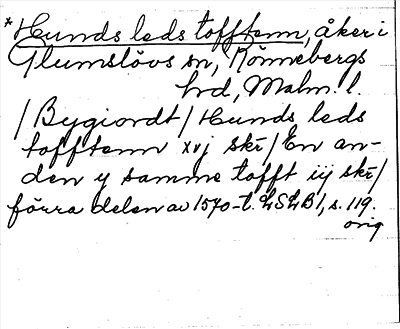 *Hunds leds tofftenn, åker i
Glumslövs sn, Rönnebergs
hrd, Malm. l.
/Bygiordt/Hunds leds
tofftenn xvj skr/En an-
den y samme tofft iij skr/
förra delen av 1570-t. LSLB1, s. 119.
orig